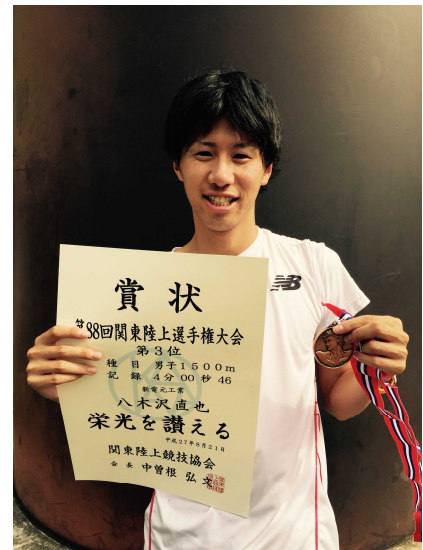 賞状
第88回関東陸上選手権大会
第3位
種目 男子1500m
記録 4分00秒46
新電元工業
八木沢直也
栄光を讃える
平成27年8月21日
関東陸上競技協会
会長 中曽根 弘文
NB